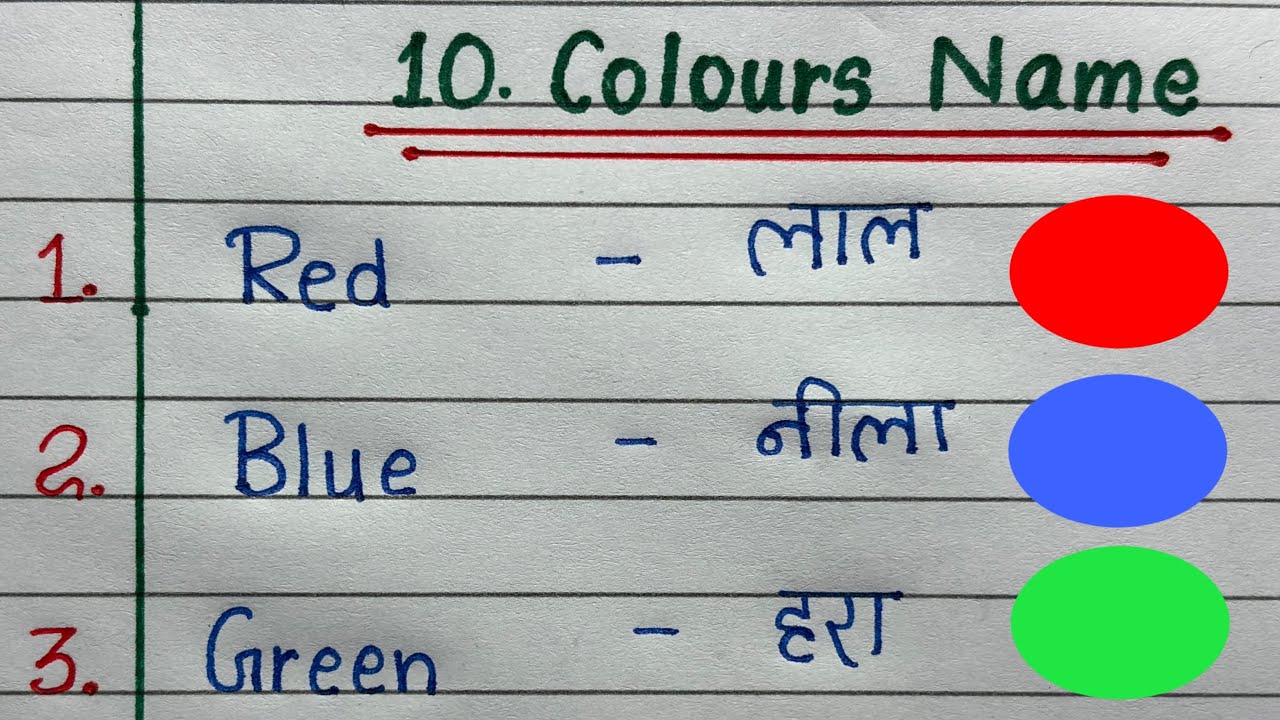 10. Colours Name
1. Red - लाल
2. Blue - नीला
3. Green - हरा